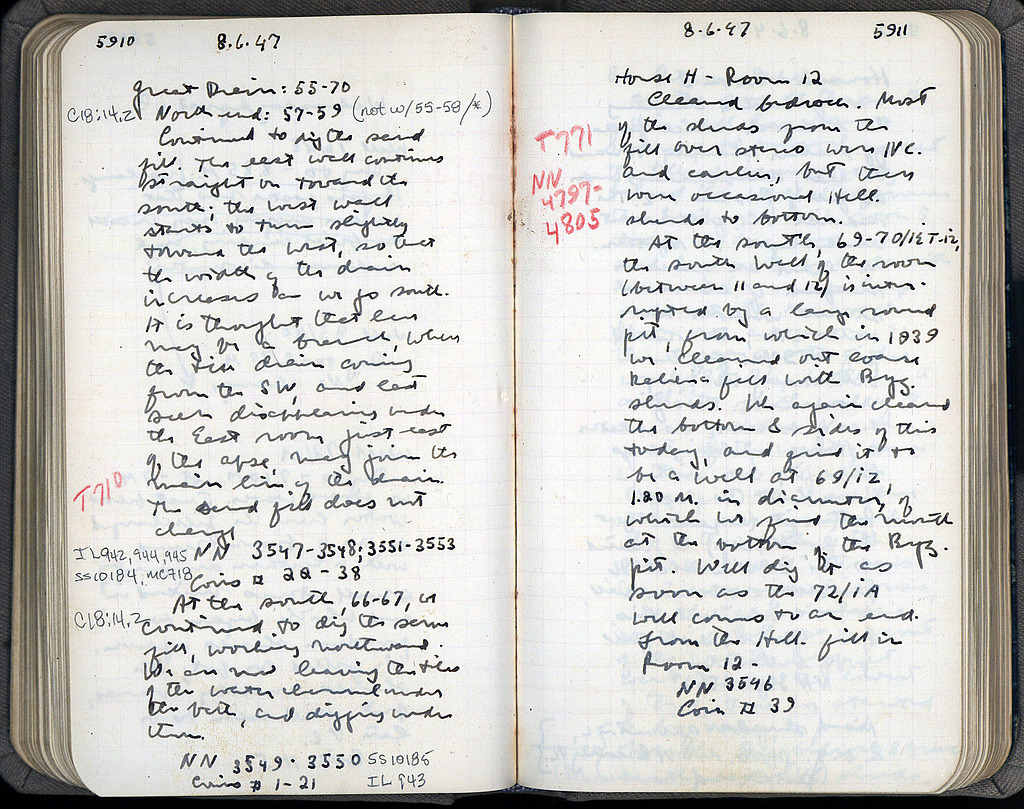 5910
8.6.47
Great Drain: 55-70
C18:14.2
North end: 57-59 (not w/55-58/*)
Continued to dig the sand
fill. The east wall continues
straight on toward the
south; the west wall
starts to turn slightly
toward the west, so that
the width of the drain
increases as we go south.
It is thought that here
may be a branch, where
the tile drain coming
from the SW, and last
seen disappearing under
the East room just east
of the apse, may join the
main line of the drain.
T710
The sand fill does not
change
IL942, 944, 945
NN 3547-3548; 3551-3553
SS10184, MC718
Coins # 22-38
At the south, 66-67, we
C18:14.2
continued to dig the same
fill, working northward.
We are now leaving the tiles
of the water channel under
the bath, and digging under
them.
NN 3549-3550 SS10185
Coins # 1-21 IL943
8.6.47
5911
House H - Room 12
Cleaned bedrock. Most
T771
of the sherds from the
fill over stereo were IV c.
NN
4797-
4805
and earlier, but there
were occasional Hell.
sherds to bottom.
At the south, 69-70/ΙΣΤ-ΙΖ,
the south wall of the room
(between 11 and 12) is inter-
rupted by a large round
pit, from which in 1939
we cleaned out
fill with Byz.
sherds. We again cleaned
the bottom & sides of this
today, and find it to
be a well at 69/ΙΖ,
1.20 M. in diameter, of
which we find the mouth
at the bottom of the Byz.
pit. Will dig it as
soon as the 72/ΙΑ
well comes to an end.
From the Hell. fill in
Room 12 -
NN 3546
Coin # 39